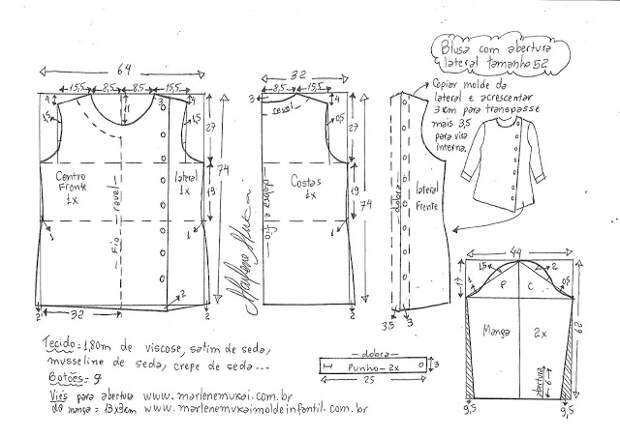 Blusa com abertura
lateral tamanho 52
64
15,5 8,5 8,5 15,5
4
11
3
4
1,5
1,5
27
19
74
Centro
Frente
1x
lateral
1x
Fio
revel
2
2
2
32
32
8,5 15,5
3
revel
4
0,5
27
19
74
Costas
1x
Marlene Mukai
Copiar molde da
lateral e acrescentar
3 cm para transpasse
mais 3,5
para vira
interna.
dobra
lateral
Frente
3,5 3
44
17
1,5
2
0,5
P C
Manga 2x
62
abertura
6
9,5 9,5
Tecido = 1,80m de viscose, satim de seda,
musseline de seda, crepe de seda...
Botões = 9
Viés para abertura www.marlenemukai.com.br
da manga = 13x3cm www.marlenemukaimoldeinfantil.com.br
dobra
Punho - 2x
3
25